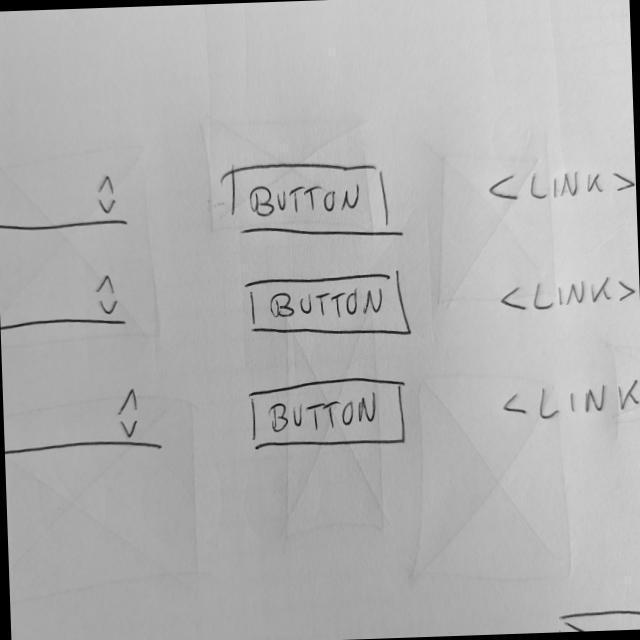 BUTTON <LINK>
BUTTON <LINK>
BUTTON <LINK